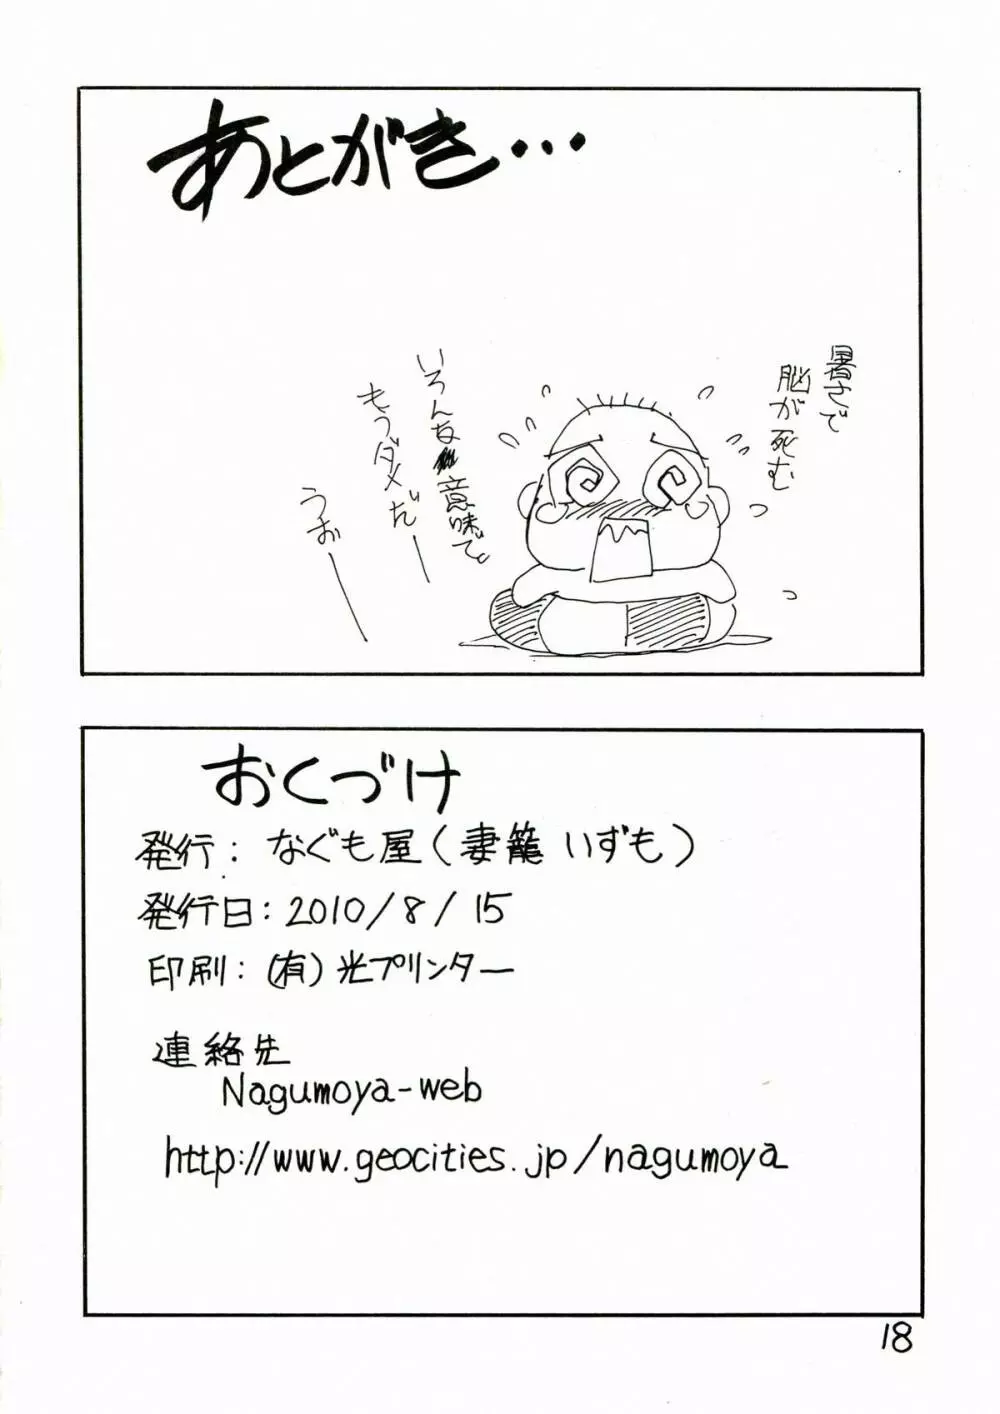 あとがき…
暑さで
脳が死む
いろんな意味で
もうダメだー
うおー
おくづけ
発行：なぐも屋（妻籠いずも）
発行日：2010/8/15
印刷：（有）光プリンター
連絡先
Nagumoya-web
http://www.geocities.jp/nagumoya
18